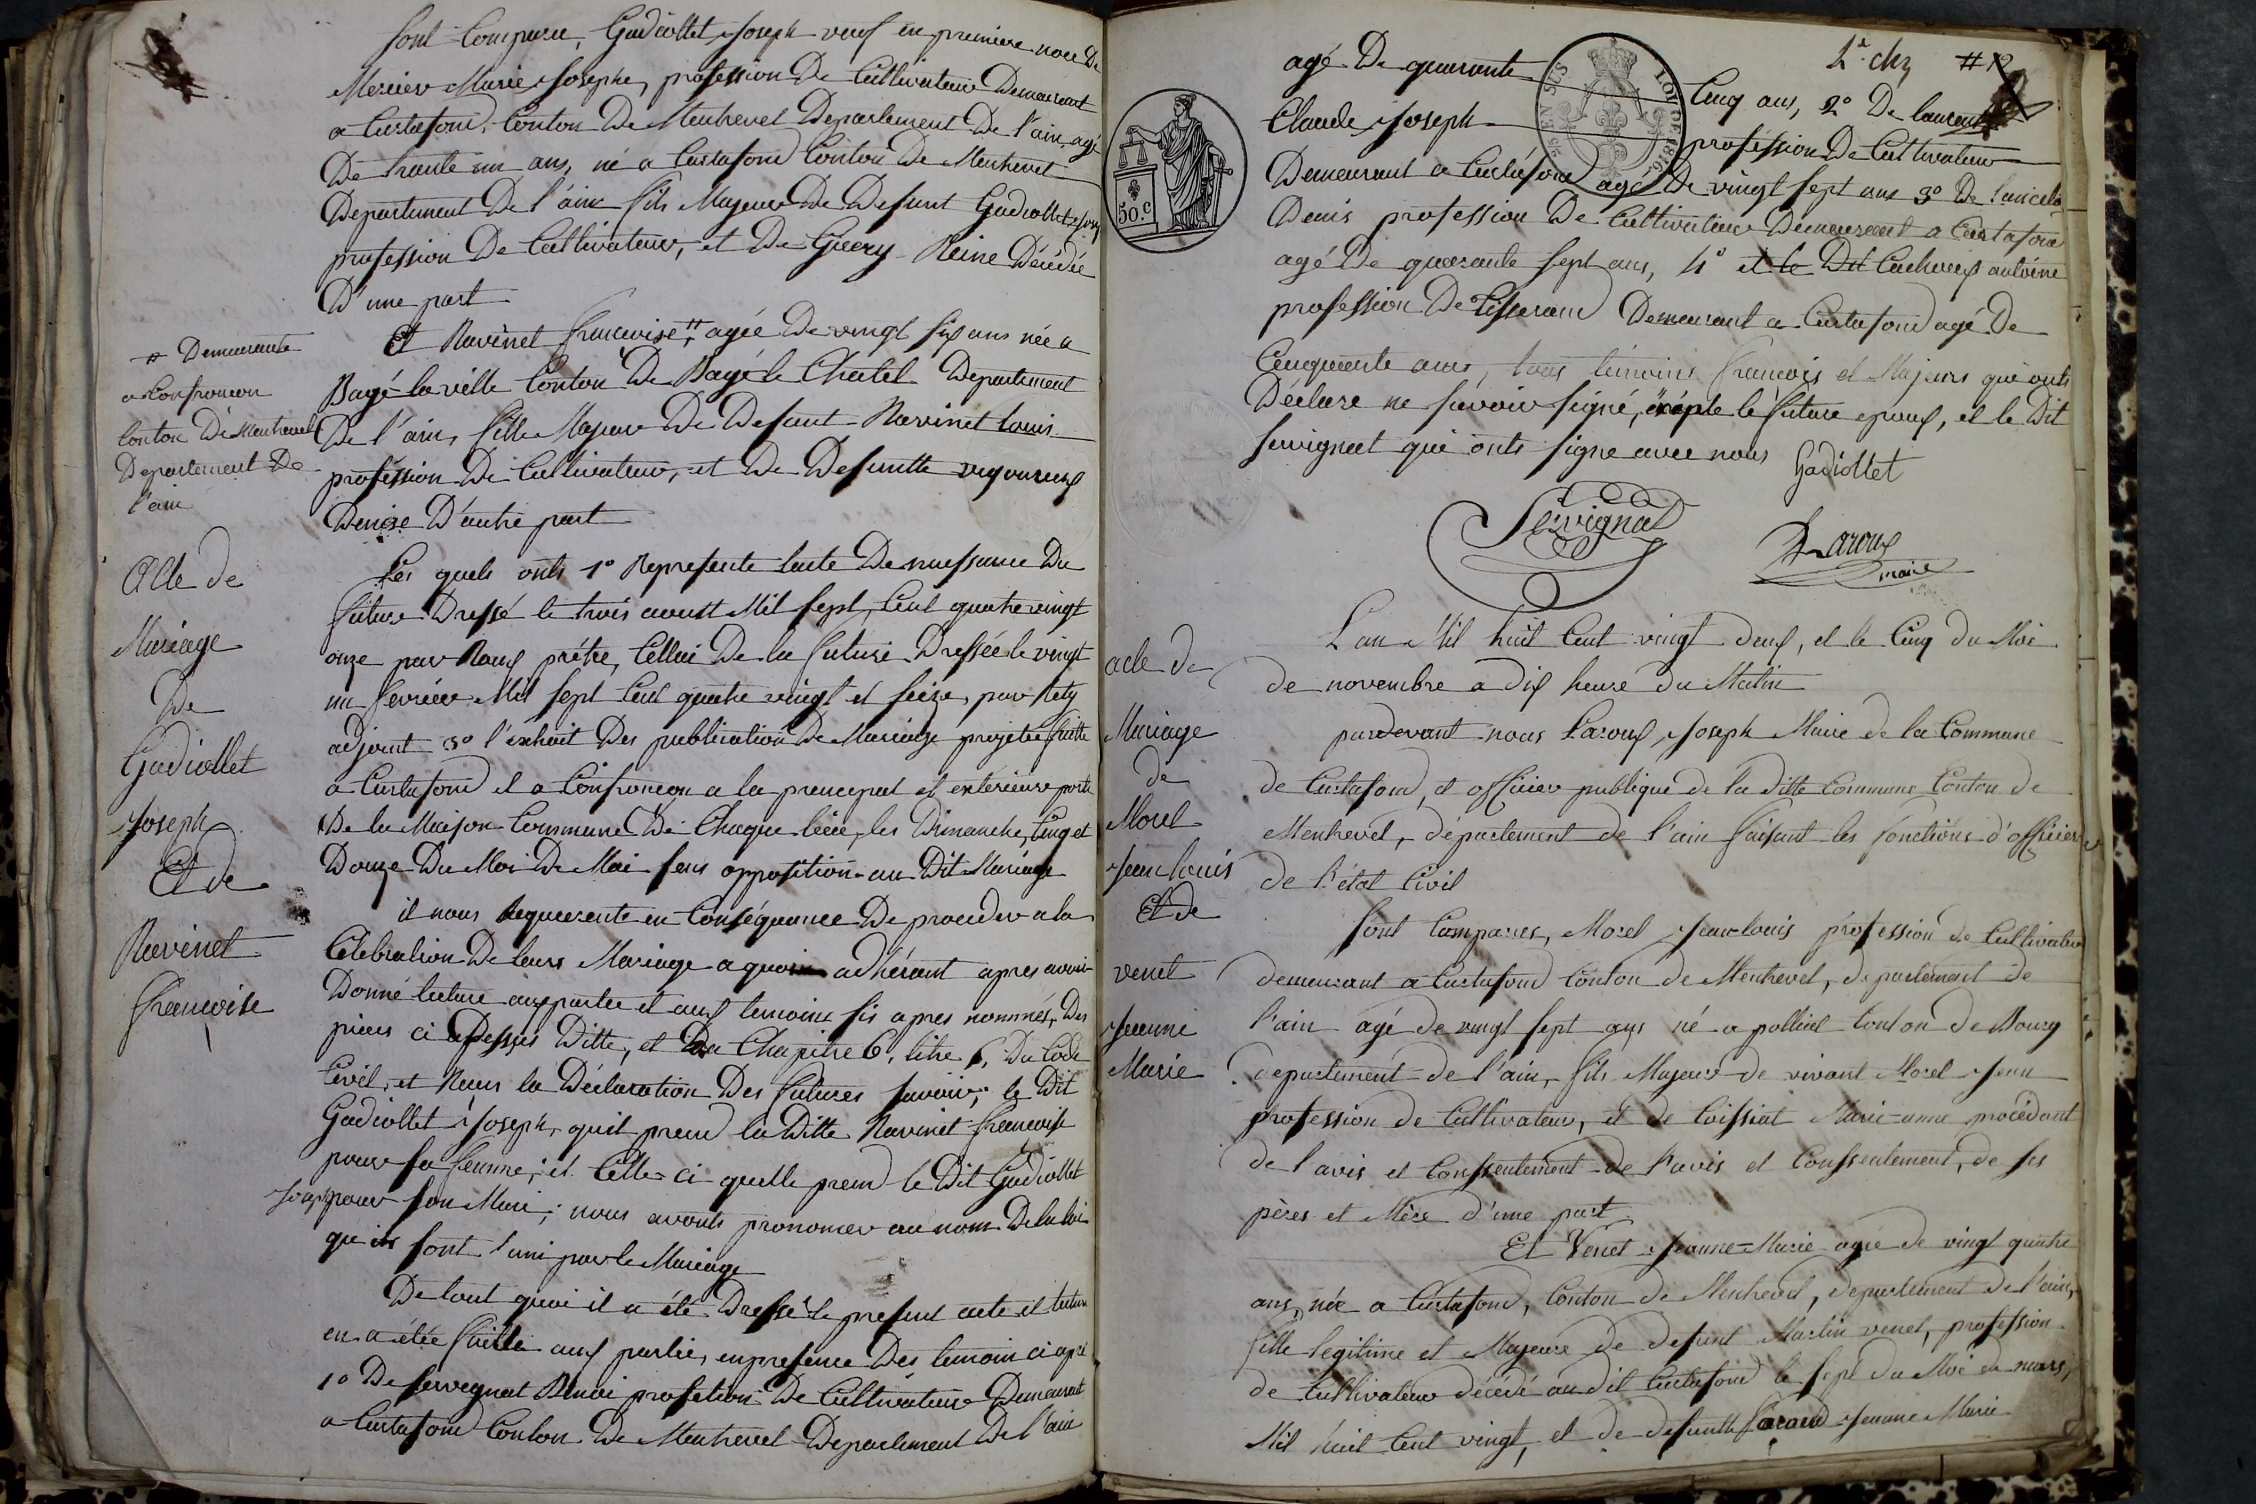 sont Comparu, Gadiollet Joseph veuf en premiere noce De
Mercier Marie Josephe, profession De Cultivateur Demeurant
a Curtafond, Conton De Mentrevel Departement De l'ain, agé
De trante un ans, né a Curtafond Conton De Mentrevel
Departement De l'ain fils Majeur De Defunt Gadiollet
profession De Cultivateur, et De Guery Reine Décédée
D'une part
Et Ravinet francoise # agée De vingt six ans née a
Bagé la ville Conton De Bagé le Chatel Departement
De l'ain, fille Majeur De Defunt Ravinet Louis
profession De Cultivateur, et De Defuntte vigoureux
Denise D'autre part
# Demeurante
a Confrancon
Conton De Mentrevel
Departement De
l'ain
Les quels onts 1° Represente lacte De naissance Du
future Dressé le trois aoust Mil sept Cent quatre vingt
onze par Roux prétre, Cellui De la future Dressée le vingt
un fevrier Mil sept Cent quatre vingt et seize, par Rety
adjoint 3° l'extrait Des publication De Mariage projetée faitte
a Curtafond et a Confrancon a la principal et exterieure porte
De la Maison Commune De Chaque lieu, les Dimanche, Cinq et
Douze Du Moi De Mai sans opposition au Dit Mariage
il nous Requerente en Conséquance De proceder a la
Célébration De leurs Mariage a quoi adhérant apres avoir
Donné lecture aux partie et aux temoins sis apres nommés, Des
pieces ci Dessus Ditte, et Du Chapitre 6, titre 5, Du Code
Civil, et Recus la Déclaration Des futures savoir; le Dit
Gadiollet Joseph, quil prend la Ditte Ravinet francoise
pour sa femme; et Celle ci quelle prend le Dit Gadiollet
Joseph pour son Mari; nous avonts prononcer au nom De la loi
qu'ils sont uni par le Mariage
De tout quoi il a été Dressé le present acte et lecture
en a étée faitte aux partie, en presence Des temoin ci apré
1° De servignat Benoi profetion De Cultivateur Demeurant
a Curtafond Conton De Mentrevel Departement De l'ain
Acte de
Mariage
De
Gadiollet
Joseph
Et de
Ravinet
francoise
agé De quarante Cinq ans, 2° De laurent
Claude Joseph profession De Cultivateur
Demeurant a Curtafond agé De vingt sept ans 3° De
Denis profession De Cultivateur Demeurant a Curtafond
agé De quarante sept ans, 4° et le Dit antoine
profession De tisserand Demeurant a Curtafond agé De
Cinquente ans, tous témoins francois et Majeurs qui onts
Déclare ne savoir signé, exépte le future epoux, et le Dit
servignat qui onts signe avec nous Gadiollet
Servignat
Laroux
maire
LOI DE 1816
50.C
acte de
Mariage
de
Morel
Jean louis
Et de
venet
Jeanne
Marie
L'an Mil huit Cent vingt deux, et le Cinq du Moi
de novembre a dix heure du Matin
pardevant nous Laroux Joseph Maire de la Commune
de Curtafond, et officier publique de la ditte Commune Conton de
Mentrevel, département de l'ain faisant les fonctions d'officier
de l'état Civil
sont Comparus, Morel Jean louis profession de Cultivateur
demeurant a Curtafond Conton de Mentrevel, departement de
l'ain agé de vingt sept ans né a polliat Conton de Bourg
departement de l'ain, fils Majeur de vivant Morel Jean
profession de Cultivateur, et de Loissiat Marie anne procédant
de l'avis et Consentement de l'avis et Consentement, de ses
pères et Mère d'une part
Et Venet Jeanne Marie agée de vingt quatre
ans, née a Curtafond, Conton de Mentrevel, departement de l'ain,
fille legitime et Majeure de defunt Martin venet, profession
de Cultivateur décédé au dit Curtafond le sept du Moi de mars,
Mil huit Cent vingt, et de defuntte Jeanne Marie